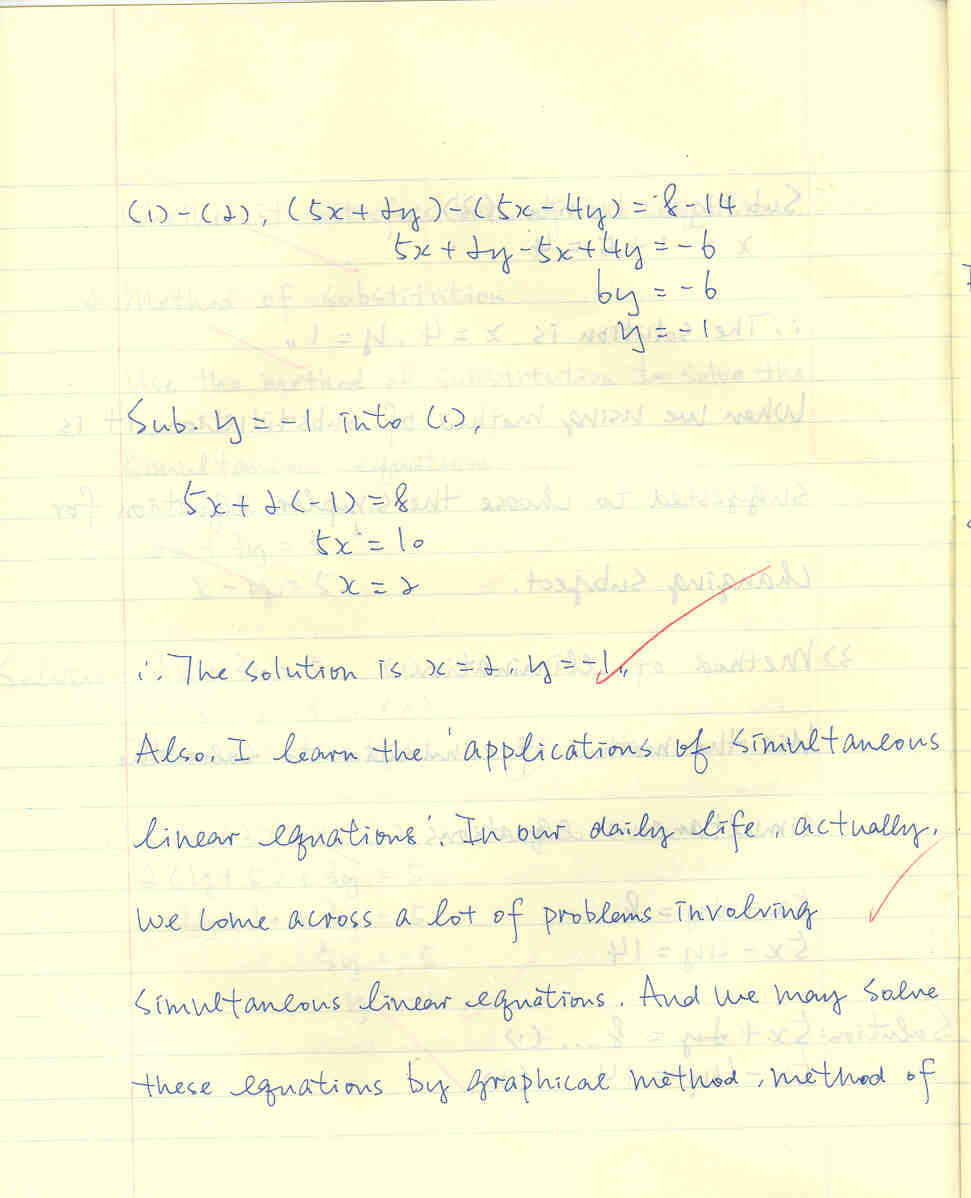 (1)-(2), (5x+2y)-(5x-4y)=8-14
5x+2y-5x+4y=-6
6y=-6
y=-1
Sub. y=-1 into (1),
5x+2(-1)=8
5x=10
x=2
∴ The solution is x=2, y=-1,,
Also, I learn the 'applications of simultaneous
linear equations'. In our daily life, actually,
we come across a lot of problems involving
simultaneous linear equations. And we may solve
these equations by graphical method, method of